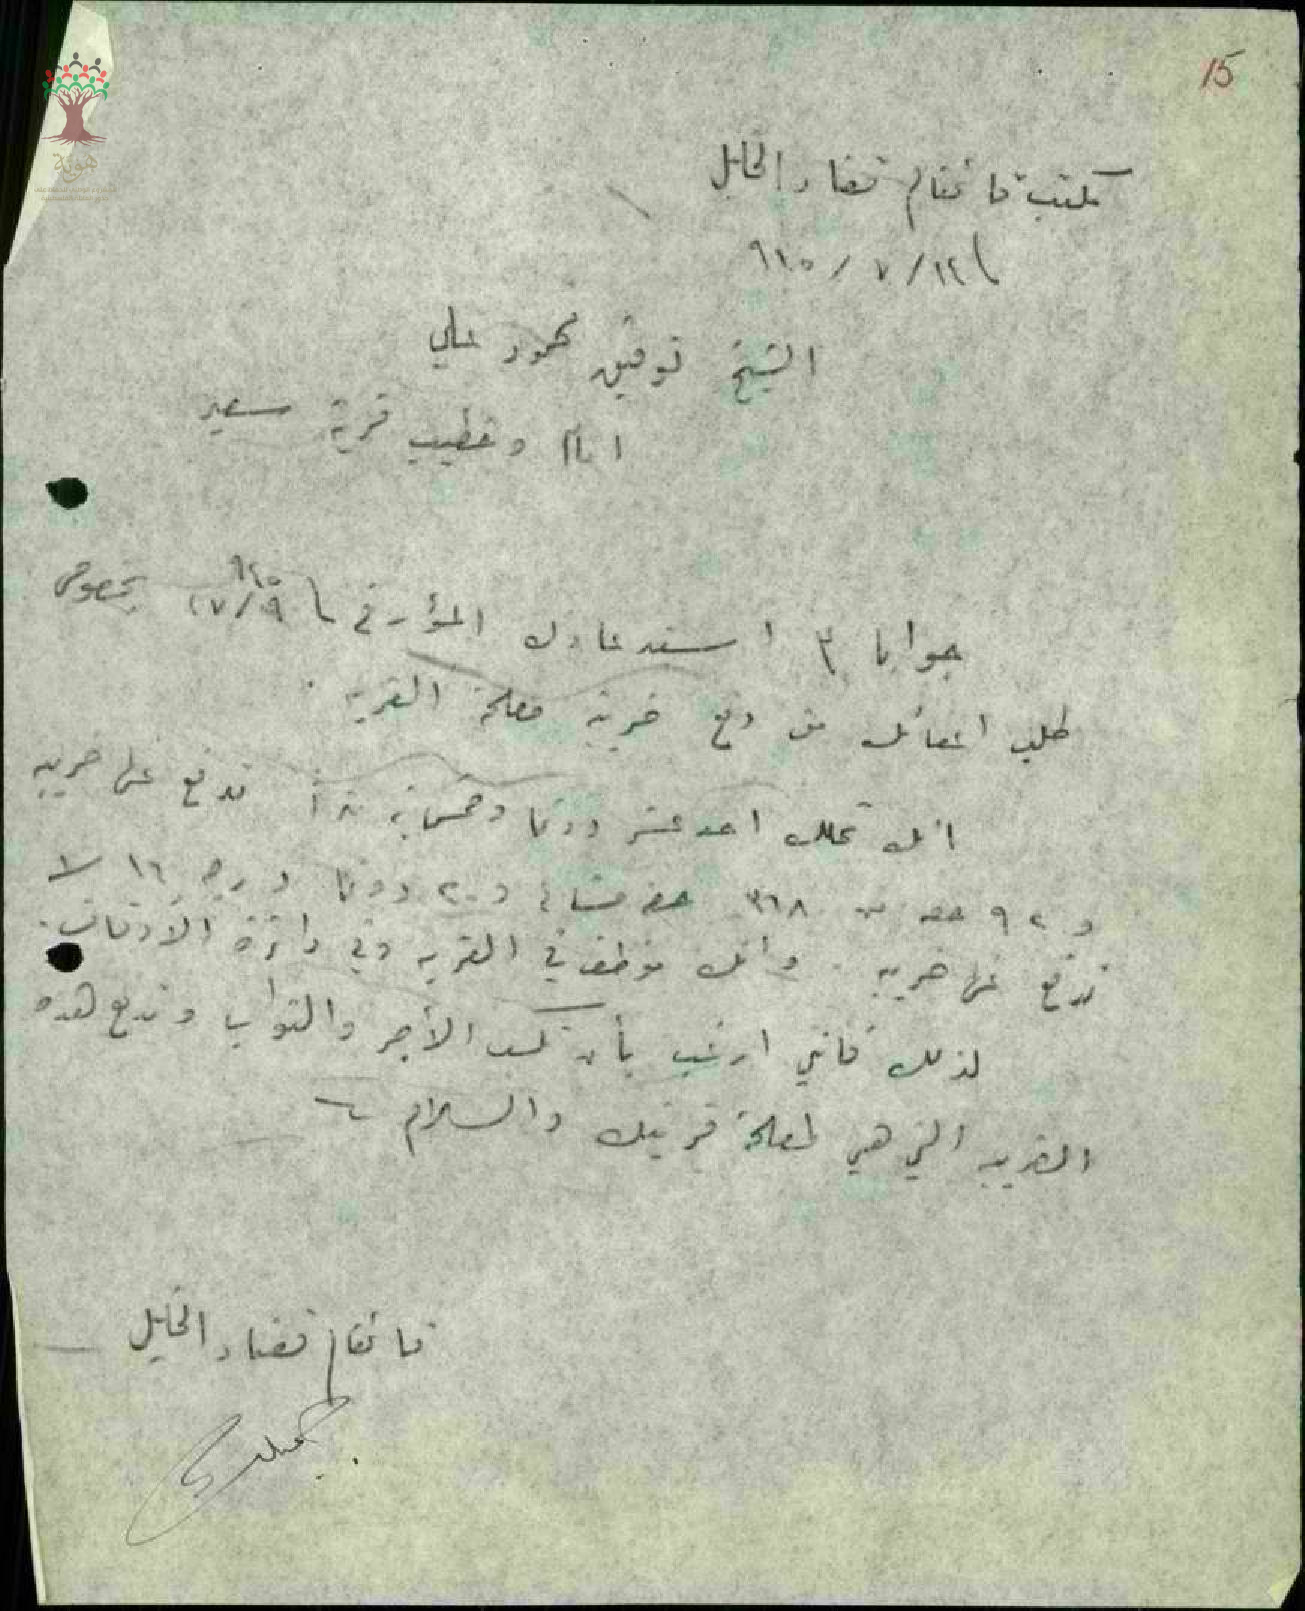 15
هوية
مكتب قائمقام قضاء الخليل
١٢/٧/
الشيخ توفيق محمود علي
امام وخطيب قرية سعير
جوابا استدعاءك المؤرخ في بخصوص
طلب اعفائك من دفع ضريبة مصلحة القرية .
انك تملك احد عشر دونما وخمسماية تدفع عنها ضريبه
و ٩٢ حصه من ٣٦٨ حصه مشاع في ٢٠ دونما درجه ١٦ لا
تدفع عنها ضريبه . وانك موظف في القريه وفي دائرة الأوقاف .
لذلك فانني ارغب بأن تكسب الأجر والثواب وتدفع هذه
الضريبه التي هي لمصلحة قريتك والسلام
قائمقام قضاء الخليل